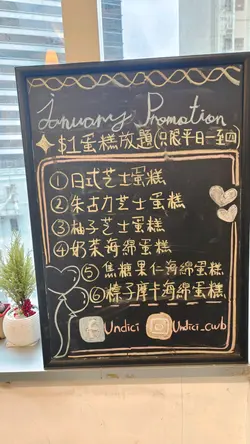 January Promotion
$1蛋糕放題(只限平日一至四)
①日式芝士蛋糕
②朱古力芝士蛋糕
③柚子芝士蛋糕
④奶茶海綿蛋糕
⑤焦糖果仁海綿蛋糕
⑥榛子摩卡海綿蛋糕
Undici Undici_cwb